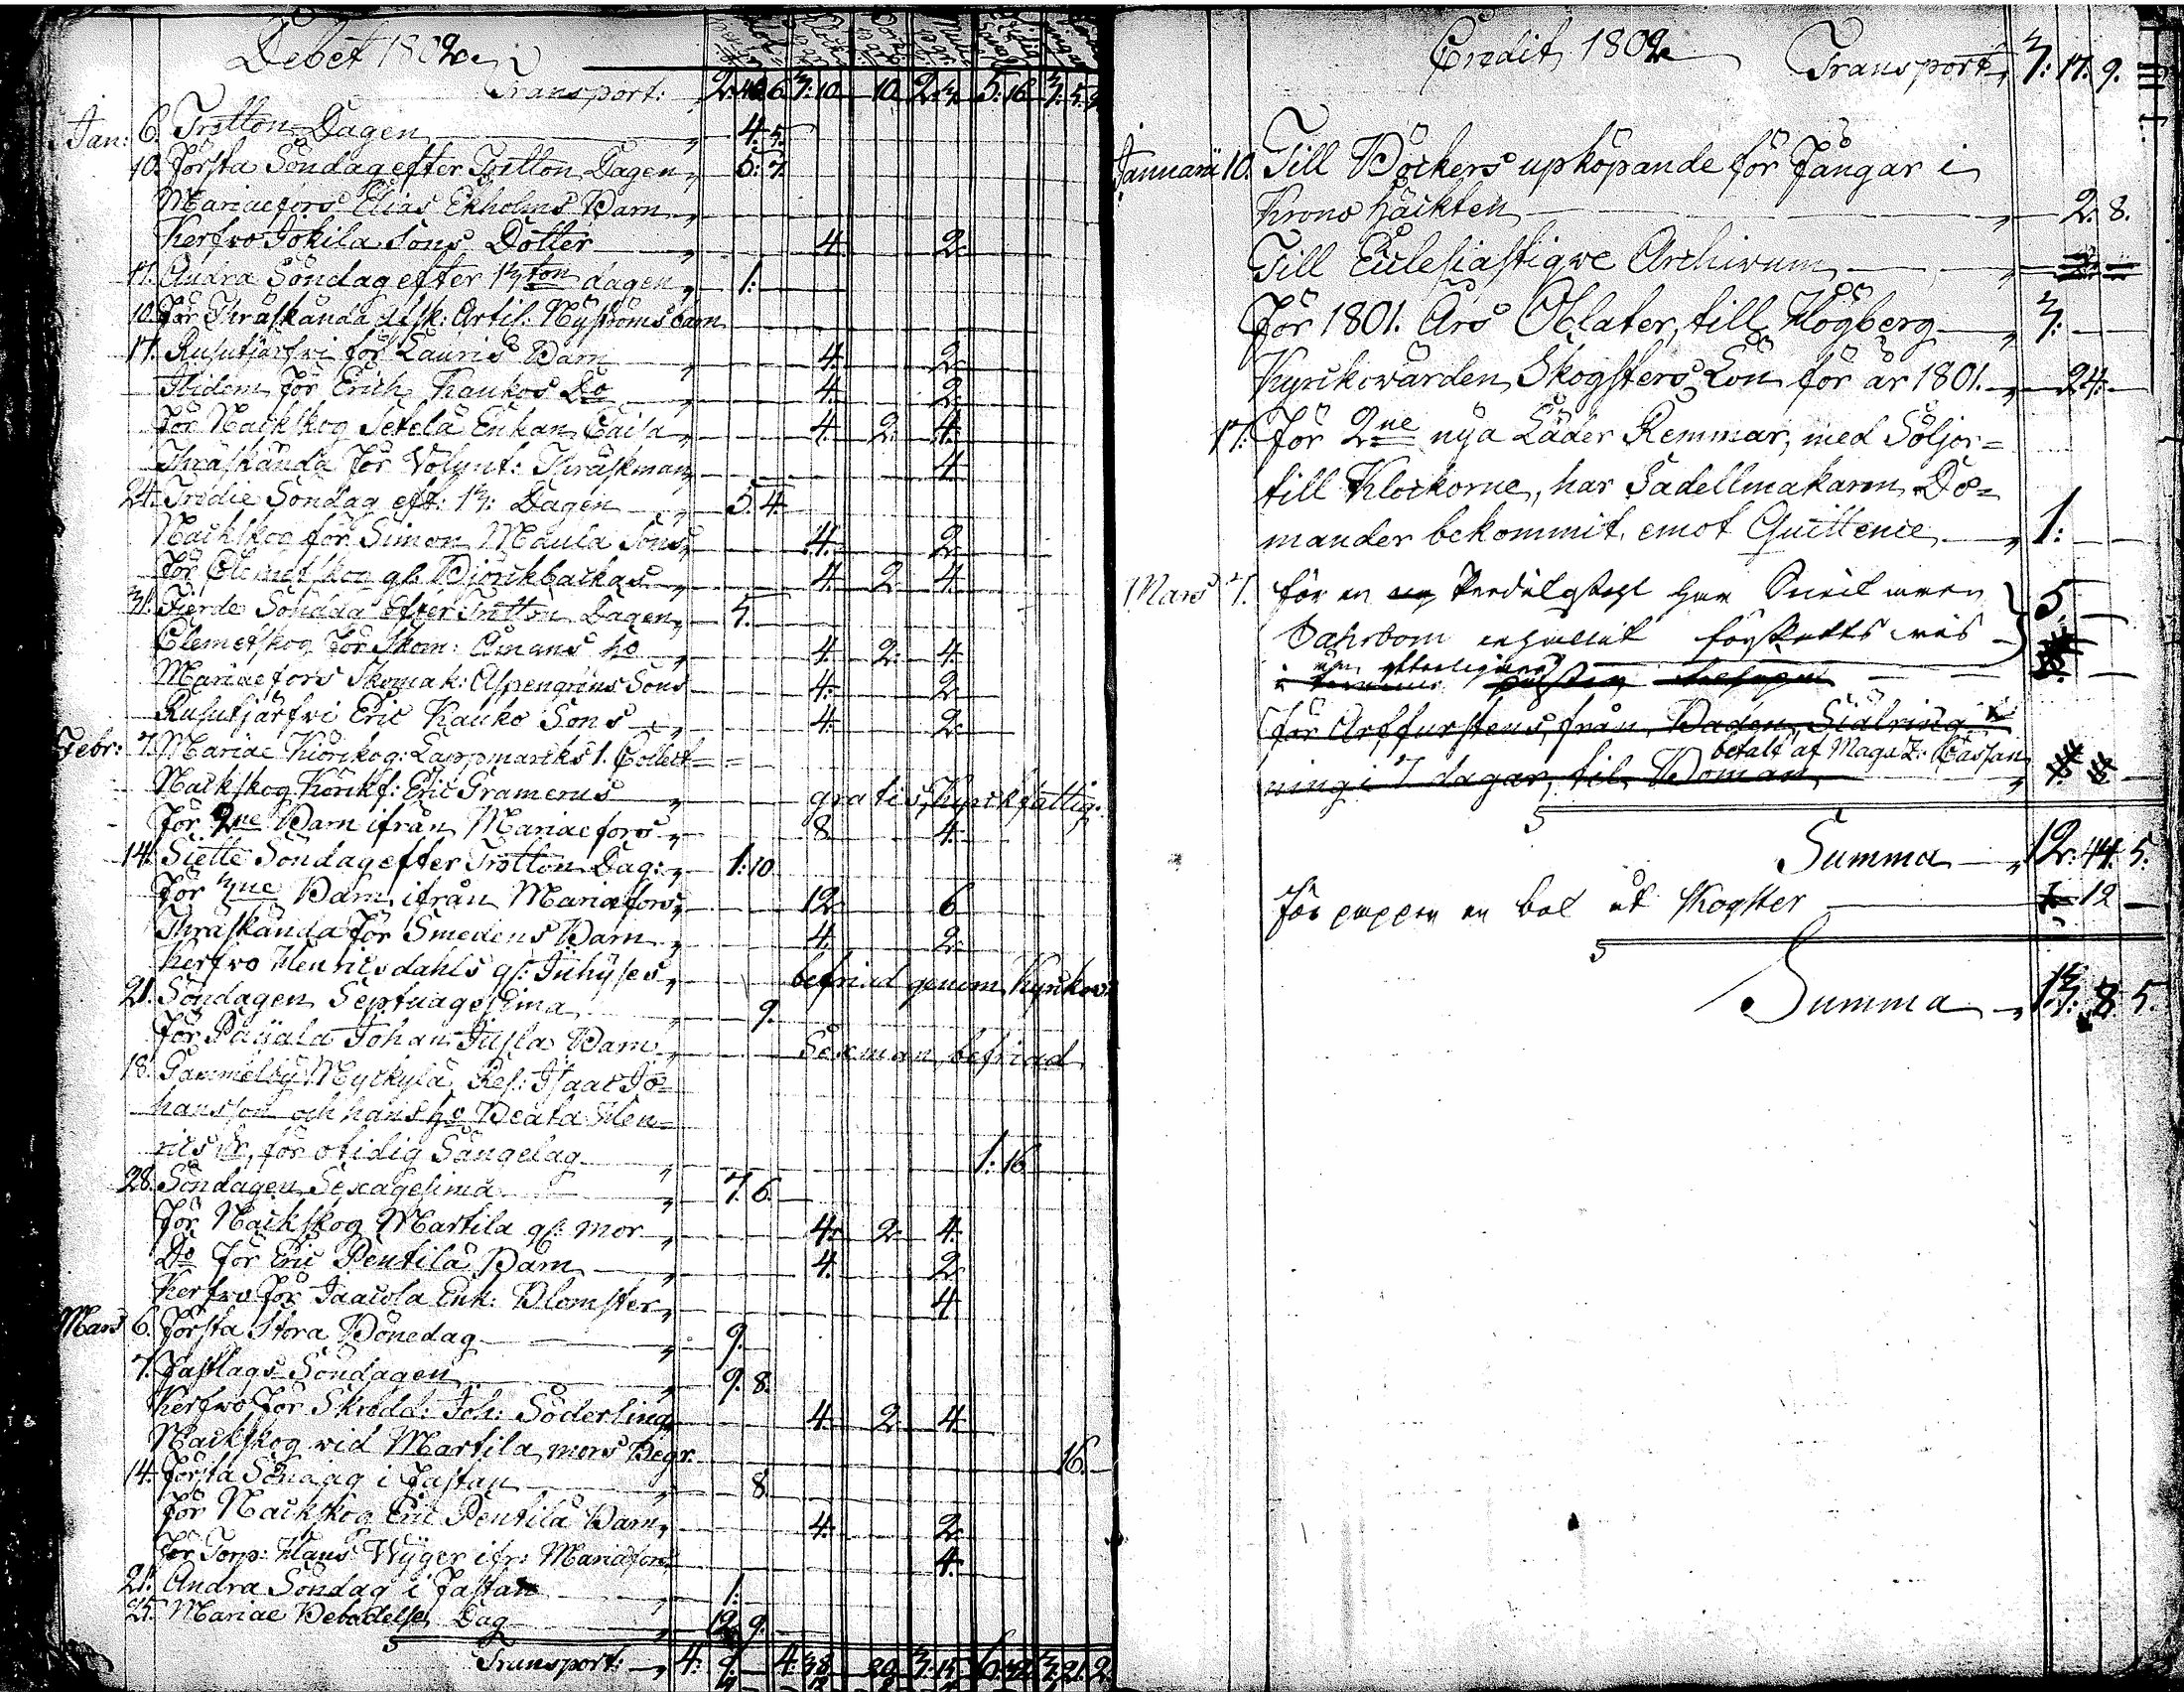 Debet 1802
Transport: 2: 6 3: 10 10 2: 5: 16 3: 5.
Jan: 6. Tretton Dagen 4. 5.
10. Första Söndag efter Tretton Dagen 5: 7.
Mariæfors Elias Ekholms Barn
Kerfvo Jokila Sons Dotter 4. 2.
17. Andra Söndag efter 13ton dagen 1:
10. För Thräskända afsk: Artil: Nÿströms barn
17. Rusutjärfvi för Lauris Barn 4. 2.
Ibidem för Erich Kaukos Do 4. 2.
För Nackskog Setelä Enkan Caisa 4. 2. 4.
Thräskända för Volunt: Thräskman 4.
24. Tredie Söndag eft: 13: Dagen 5. 4.
Nackskog för Simon Maula Sons 4. 2.
För Clemetskog gl. Björckbackas 4. 2. 4.
31. Fierde Söndag efter Tretton Dagen 5.
Clemetskog för Skom: Åmans ho 4. 2. 4.
Mariæfors Skomak: Aspengréns Sons 4. 2.
Rusutjärfvi Eric Kauko Sons 4. 2.
Febr: 7. Mariae Kiörckog: Lappmarcks 1. Collect
Nackskog Eric Gramerus gratis, Kyrckfattig.
För 2ne Barn ifrån Mariaefors 8. 4.
14. Siette Söndag efter Tretton Dag: 1: 10.
För 3ne Barn ifrån Mariæfors 12. 6.
Thräskända för Smedens Barn 4. 2.
Kerfvo Henricsdahls gl: Inhÿses befriad genom Kyrkov:
21. Söndagen Septuagesima 9.
För Päijälä Johan Jusla Barn Sexman, befriad
18. Gammelby Myckylä, Res: Isaac Jo=
hansson och hans ho Beata Hen=
rics Dr, för otidig Sängelag 1: 16.
28. Söndagen Sexagesima 7. 6.
För Nackskog Martila gl: mor 4. 2. 4.
Do för Eric Pentilä Barn 4. 2.
Kerfvo för Jaacola Enk: Blomster 4.
Mars 6. Första Stora Bönedag 9.
7. Fastlags Söndagen 9. 8.
Kerfvo för Skrädd: Joh: Söderling 4. 2. 4.
Nackskog vid Martila mors Begr. 16.
14. Första Söndag i Fastan 8.
För Nackskog Eric Pentilä Barn 4. 2.
För Torp: Hans Wÿger ifr: Mariæfors 4.
21. Andra Söndag i Fastan 1:
25. Mariae Bebådelse Dag 12. 9.
Transport: 4: 9. 4: 38. 20. 3: 15. 3: 21. 2.
Credit 1802 Transport 3: 17. 9.
Januarii 10. Till Böckers upköpande för Fångar i
Krono häckten 2. 8.
Till Ecclesiastiqve Archivum
För 1801. Års Oblater, till Högberg 3: —
Kyrckovärden Skogsters Lön för år 1801. 24. —
17. För 2ne nya Läder Remmar, med Söljor=
till Klockorne, har Sadellmakaren Bo=
mander bekommit, emot Qvittence 1: —
Mars 7. för en
Dahrbom förskotts vis 5. —
för Arffurstens från Baden, Siälring=
betalt af Magaz: Cassan
ning i 7 dagar, til Boman
Summa 12: 44. 5.
För en bok åt Skogster 12 —
Summa 13: 8. 5.